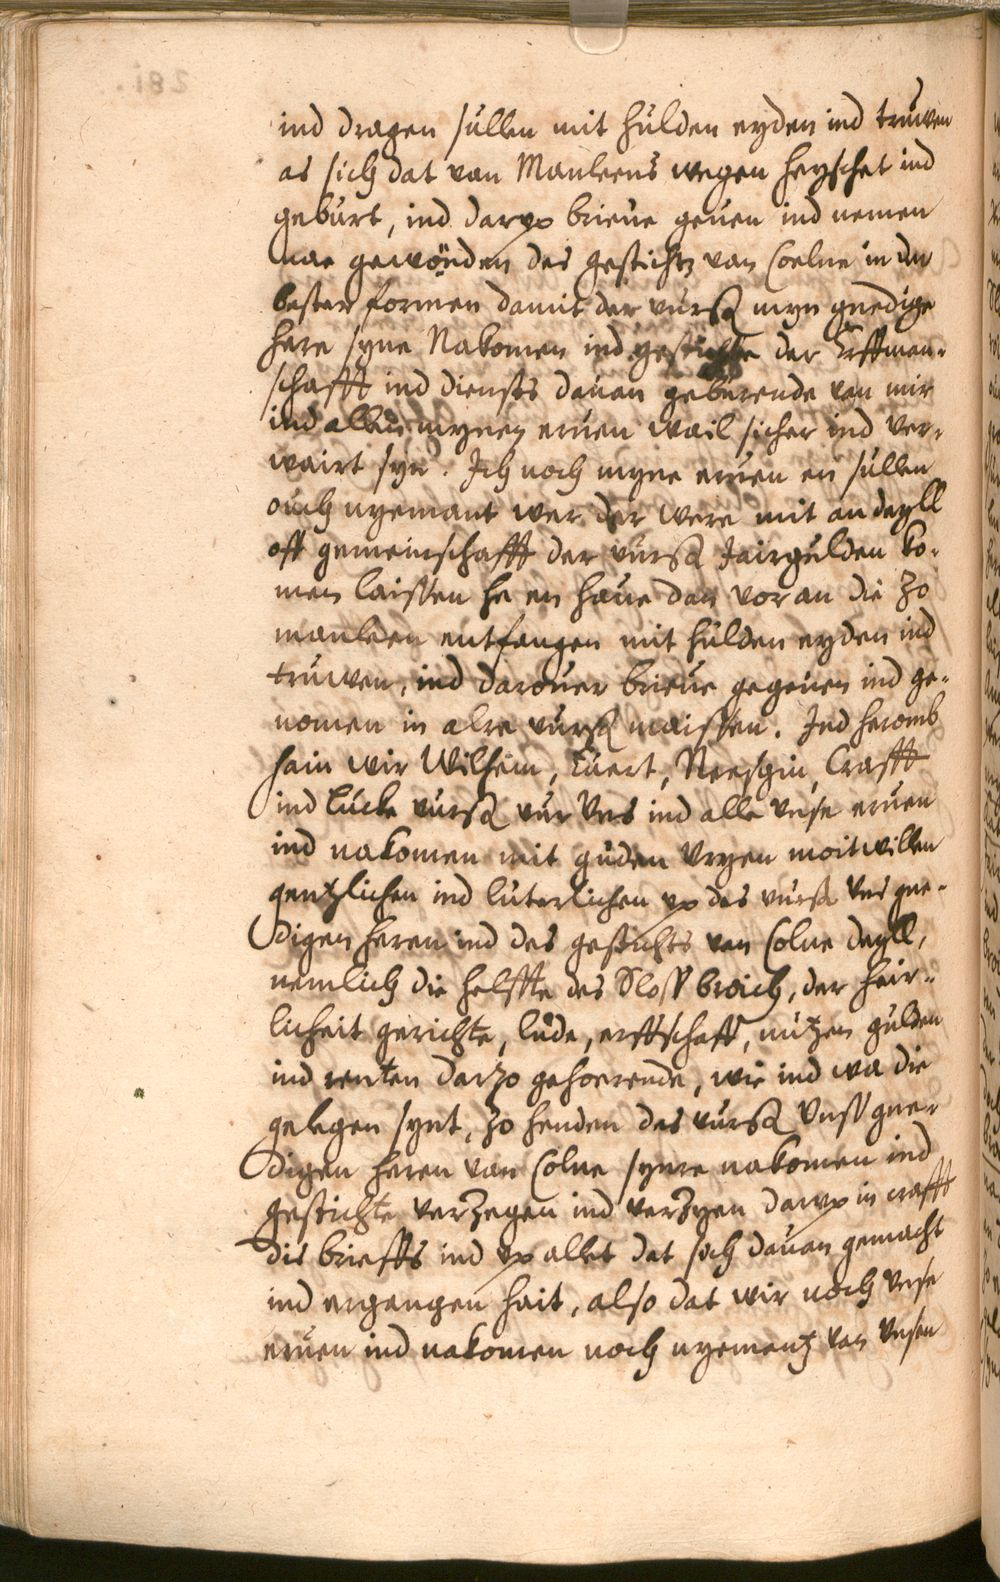 ind dragen sullen mit hulden eyden ind truwen
as sich dat van Manleens wegen heyschet ind
geburt, ind darup brieue geuen ind nemen
nae gewonden des gestichtz van Coelne in der
bester formen damit der vurß myn gnedige
here syne Nakomen ind gestichte der Erffman-
schafft ind diensts dauan geburende van mir
ind allen mynen eruen wail sicher ind ver-
wairt syn. Ich noch myne eruen en sullen
ouch nyemant wer der were mit an deyll
off gemeinschafft der vurß Jairgulden ko-
men laissen he en haue dan vor an die zo
manleen entfangen mit hulden eyden ind
truwen, ind darouer brieue gegeuen ind ge-
nomen in alre vurß maissen. Ind heromb
hain wir Wilhem, Euert, Neesgin, Crafft
ind Lucke vurß vur Vns ind alle Vnse eruen
ind nakomen mit guden vryen moitwillen
gentzlichen ind luterlichen up des vurß Vns gne-
digen heren ind des gestichts van Colne deyll,
nemlich die helffte des Sloss broich, der heir-
licheit gerichte, lude, erffschafft, nutzen gulden
ind renten darzo gehoerende, wie ind wa die
gelegen synt, zo henden des vurß Vnss gne-
digen heren van Colne synre nakomen ind
gestichte verzegen ind verzyen darup in crafft
dis brieffs ind up allet dat sich dauan gemacht
ind ergangen hait, also dat wir noch Vnse
eruen ind nakomen noch nyemantz van Vnsen